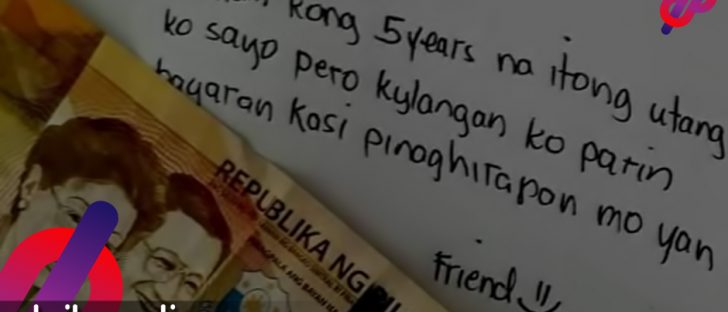 kong 5years na itong utang
ko sayo pero kylangan ko parin
bayaran kasi pinaghirapan mo yan
Friend
REPUBLIKA NG